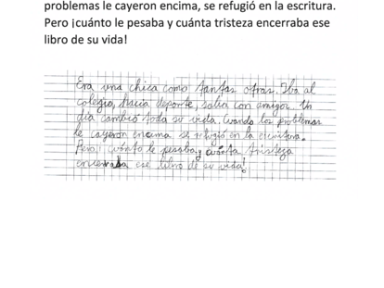 problemas le cayeron encima, se refugió en la escritura.
Pero ¡cuánto le pesaba y cuánta tristeza encerraba ese
libro de su vida!
Era una chica como tantas otras. Iba al
colegio, hacía deporte, salía con amigos. Un
día cambió toda su vida. Cuando los problemas
le cayeron encima se refugió en la escritura.
Pero ¡cuánto le pesaba y cuánta tristeza
encerraba ese libro de su vida!